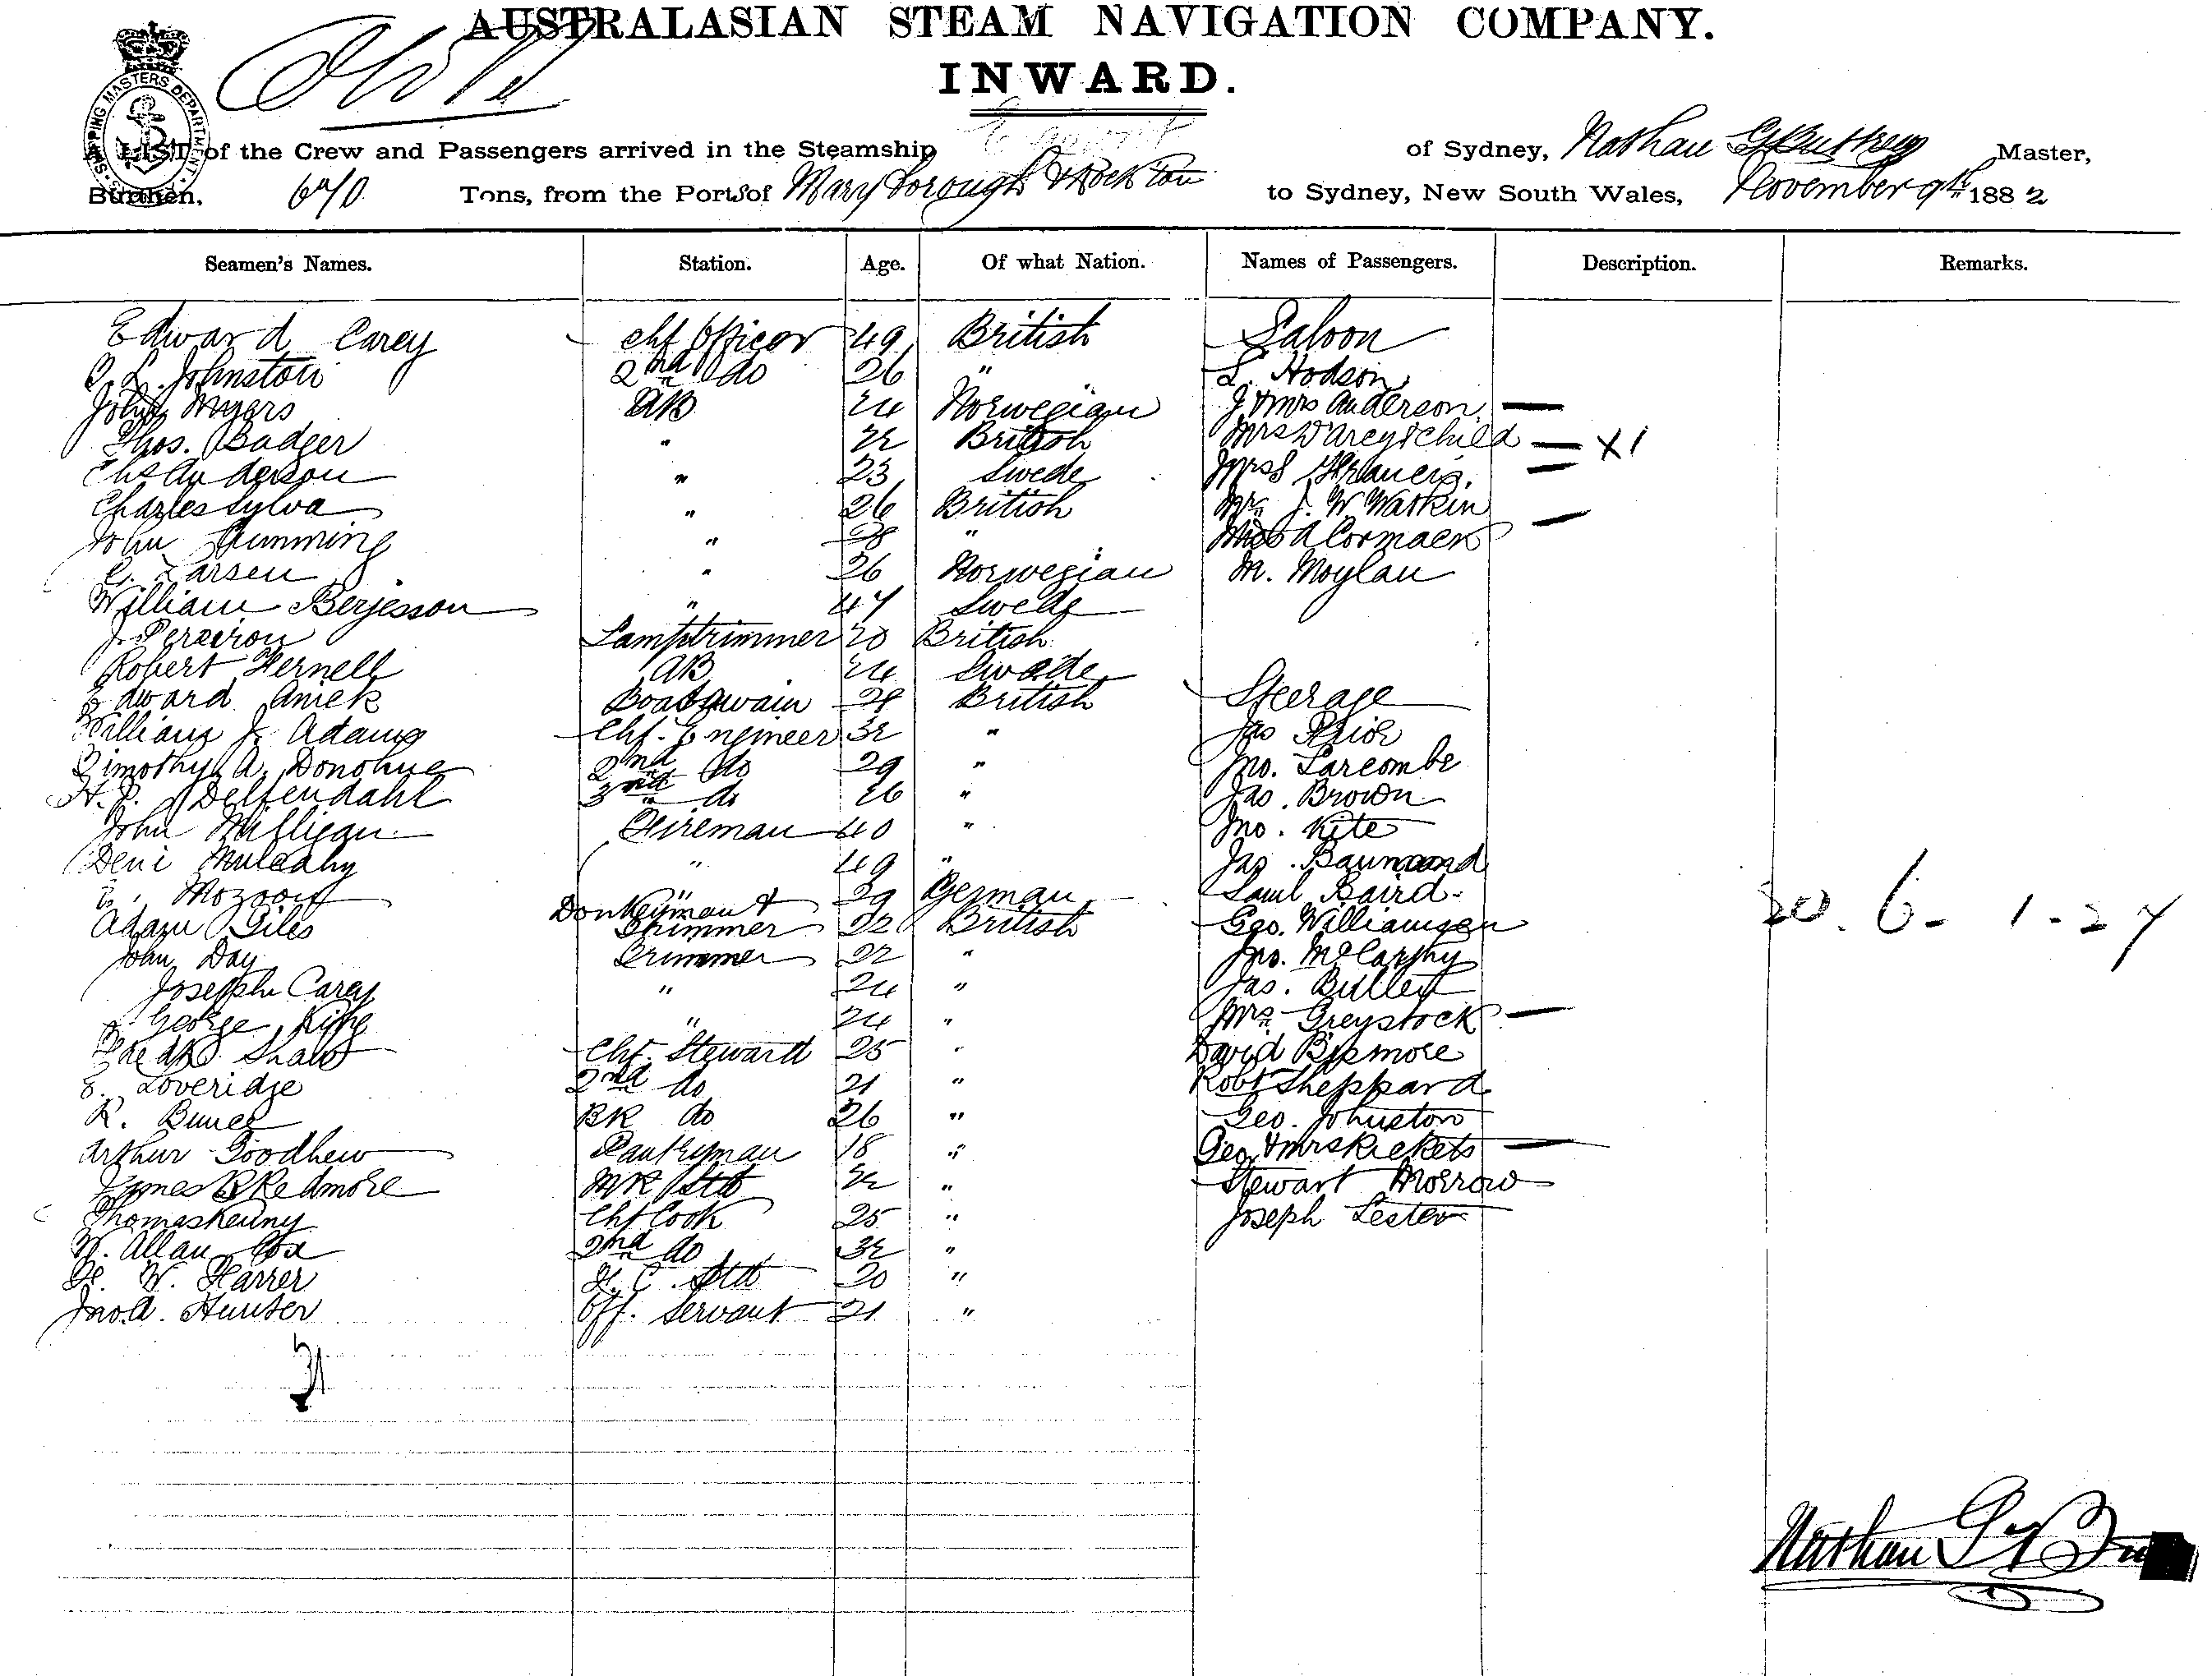 AUSTRALASIAN STEAM NAVIGATION COMPANY.
INWARD.
SHIPPING MASTERS DEPARTMENT
A LIST of the Crew and Passengers arrived in the Steamship of Sydney, Nathan Master,
Burthen, 640 Tons, from the Port s of Maryborough & Rockton to Sydney, New South Wales, November 9th 1882
Seamen's Names. Station. Age. Of what Nation. Names of Passengers. Description. Remarks.
Edward Carey Chf Officer 49 British Saloon
Johnston 2nd do 26 " L. Hodson
John Myers AB 24 Norwegian J & Mrs Anderson
Thos. Badger " 22 British Mrs Darcy & Child X1
Chs Anderson " 23 Swede Francis.
Charles Sylva " 26 British Mr J. W. Watkin
John Cumming " 28 " Miss A Cormack
C. Larsen " 26 Norwegian M. Moylan
William Berjesson " 47 Swede
J. Lamptrimmer 20 British
Robert Fernell AB 24 Swede
Edward Amek Boatswain British Steerage
William J. Adams Chf. Engineer 32 " Jas Prior
Timothy A. Donohue 2nd do 29 " Jno. Larcombe
H. P. Delfendahl 3rd do 26 " Jas. Brown
John Milligan Fireman 40 " Jno. Kite
Deni Mulcahy " 49 " Jas.
" 29 German Saml Baird
Adam Giles Donkeyman & Trimmer 22 British Geo. Williamson
John Day Trimmer 22 " Jno. McCarthy
Joseph Carey " 24 " Jas. Bullett
George King " 24 " Mrs Greystock
Fredk. Shaw Chf. Steward 25 " David
E. Loveridge 2nd do 21 " Robt Sheppard
R. Bunce BK do 26 " Geo. Johnston
Arthur Goodhew Pantryman 18 " Geo & Mrs Rickets
James Redmore MR Std 22 " Stewart Morrow
Thomas Kenny Chf Cook 25 " Joseph Lester
W. Allan Cox 2nd do 32 "
W. Harrer F. C. Std 20 "
Jno. A. Hunter Off. Servant 21 "
31
30. 6 - 1 - 27
Nathan